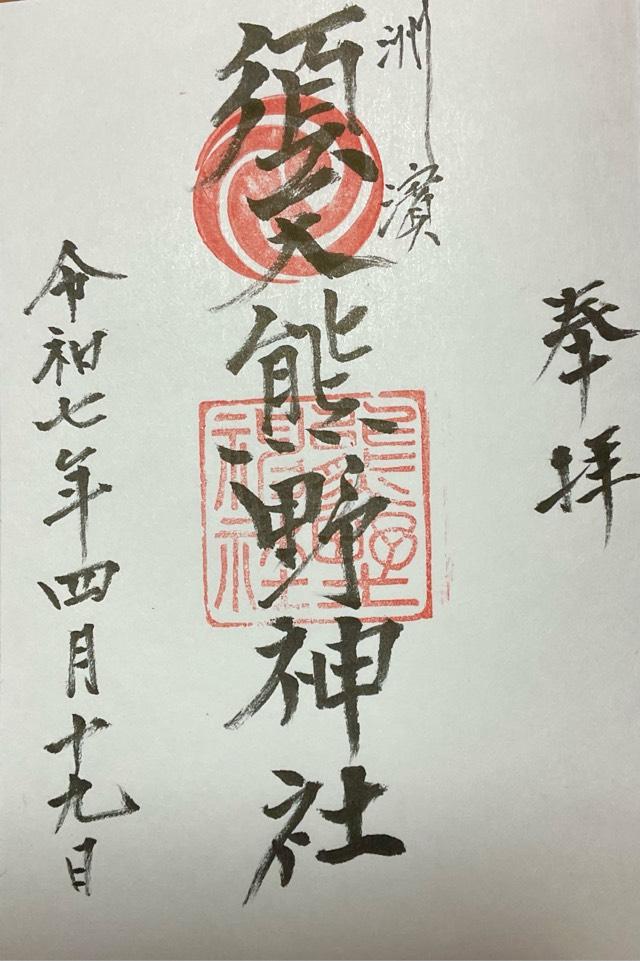 奉拝
洲濱
須天熊野神社
熊野
神社
令和七年四月十九日